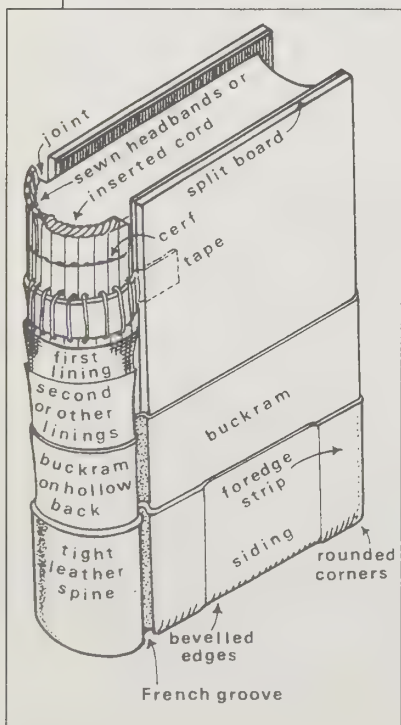 joint
sewn headbands or
inserted cord
split board
cerf
tape
first
lining
second
or other
linings
buckram
on hollow
back
tight
leather
spine
buckram
foredge
strip
siding
rounded
corners
bevelled
edges
French groove